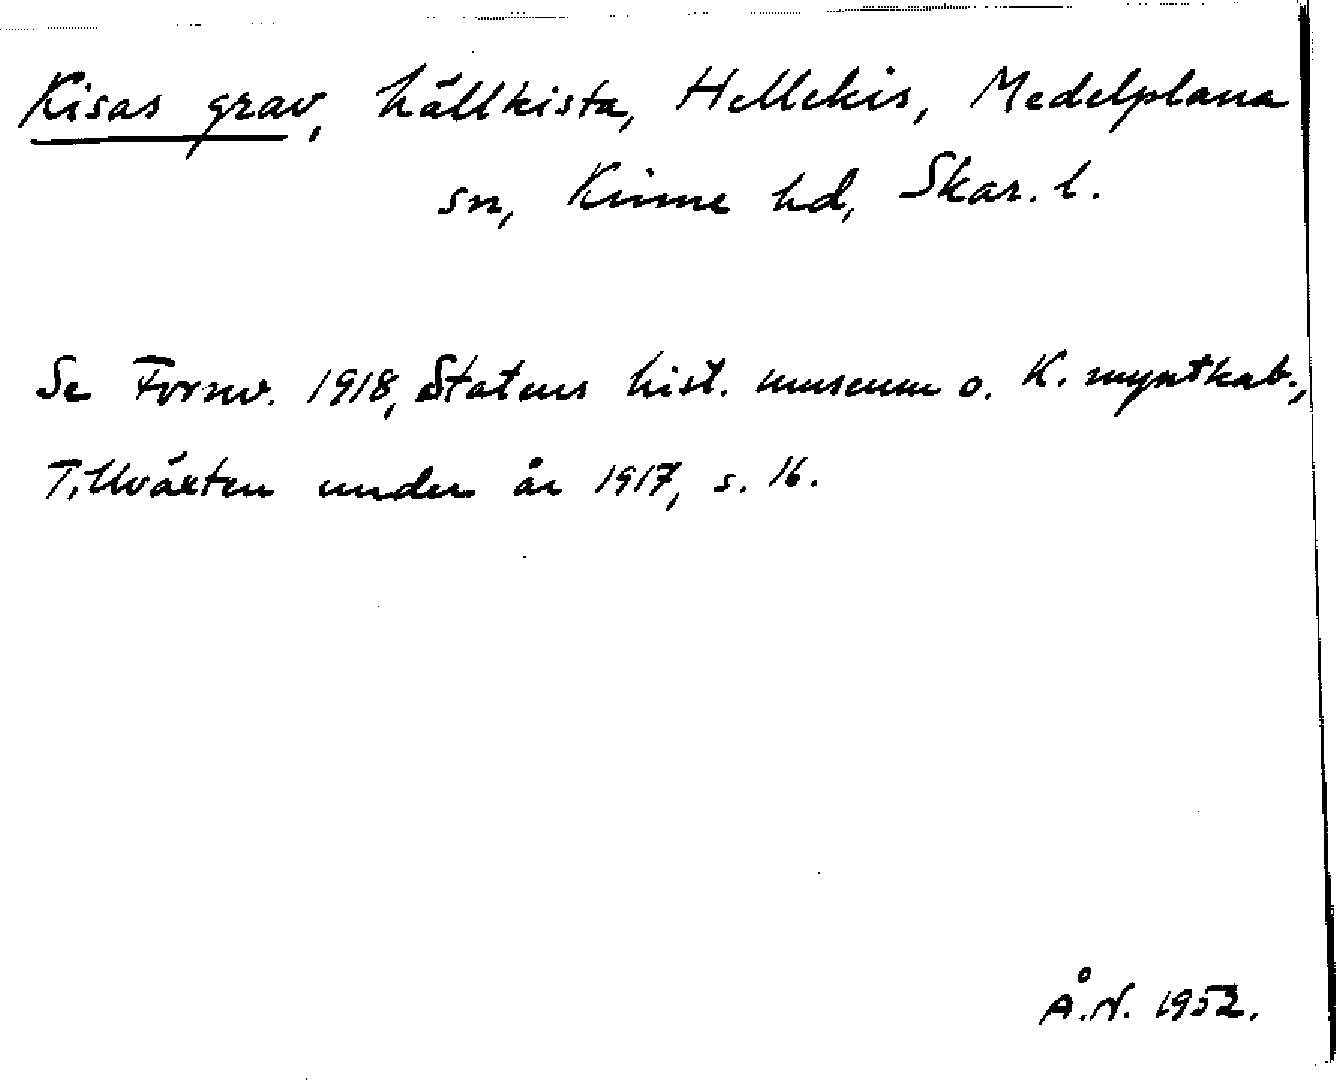 Kisas grav, hällkista, Hellekis, Medelplana
sn, Kinne hd, Skar. l.
Se Fornv. 1918, Statens hist. museum o. K. myntkab.,
Tillväxten under år 1917, s. 16.
Å.N. 1952.